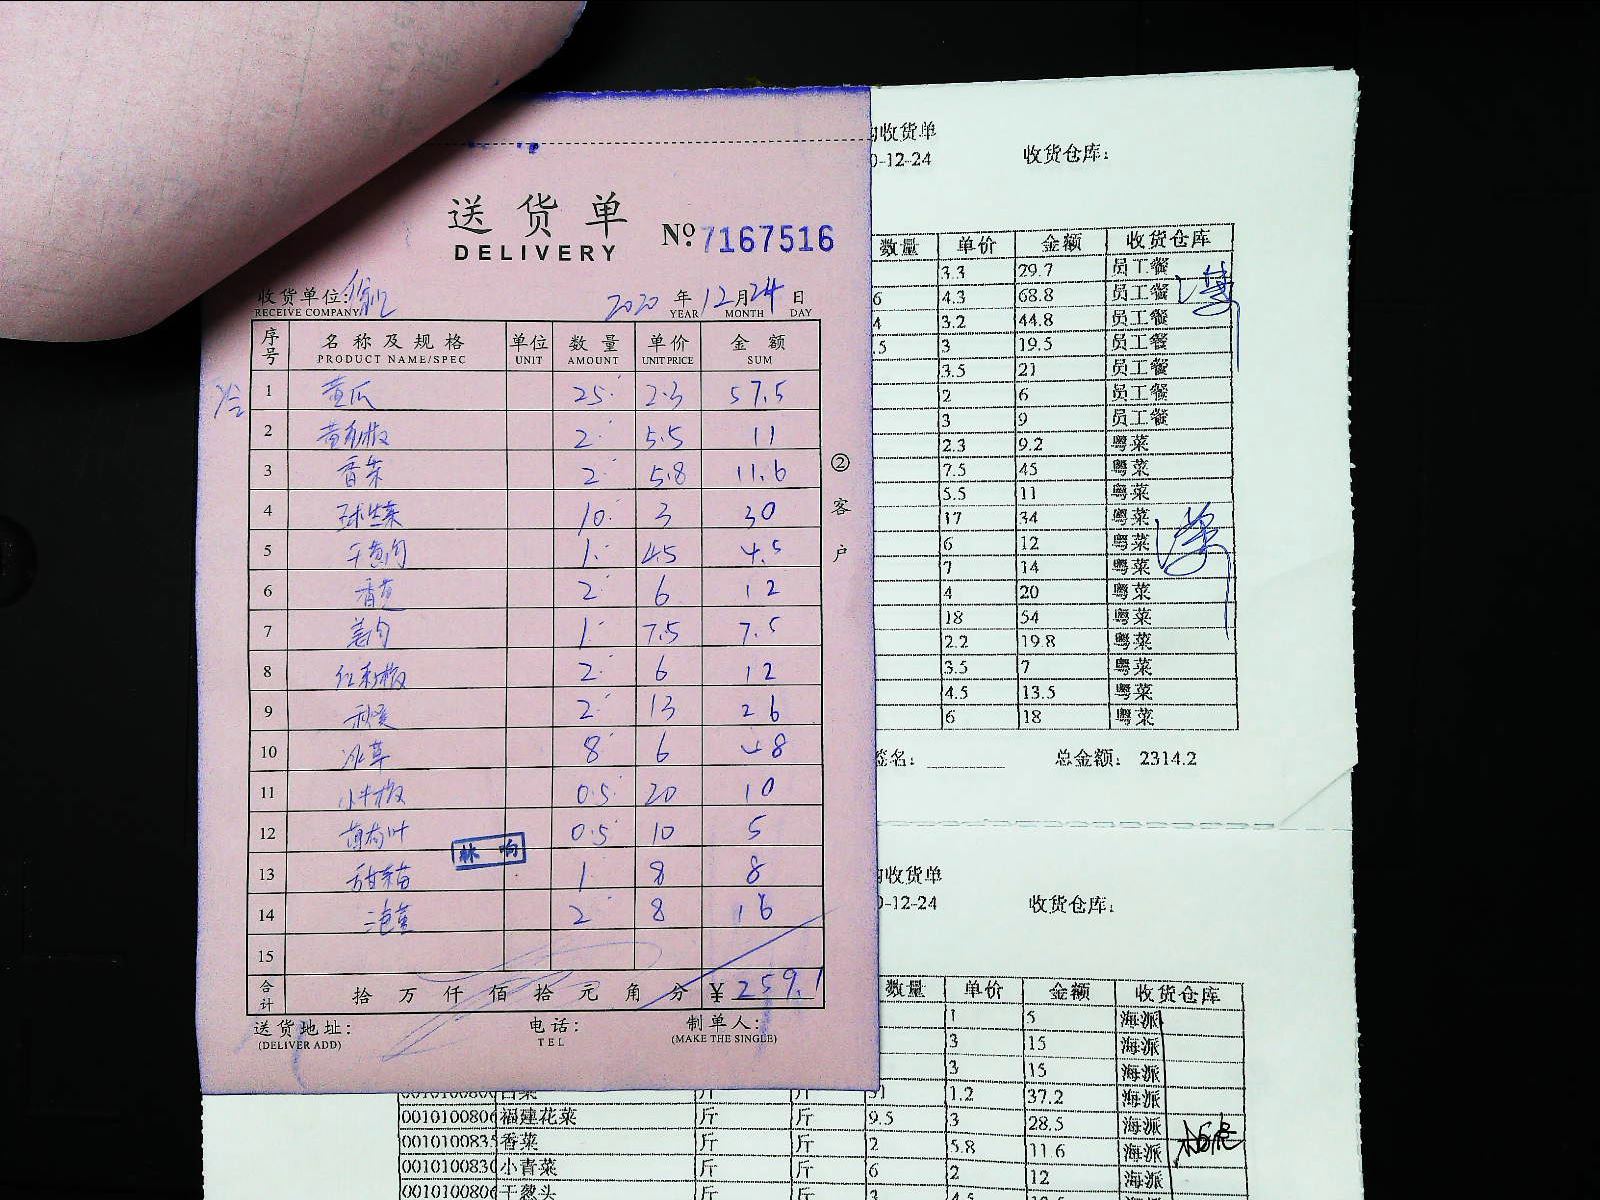 送货单
DELIVERY
№ 7167516
收货单位:
RECEIVE COMPANY
2020 年 12 月 24 日
YEAR MONTH DAY
序号 名称及规格 单位 数量 单价 金额
PRODUCT NAME/SPEC UNIT AMOUNT UNIT PRICE SUM
1 黄瓜 25 2.3 57.5
2 黄彩椒 2 5.5 11
3 香菜 2 5.8 11.6
4 球生菜 10 3 30
5 干葱肉 1 45 4.5
6 香葱 2 6 12
7 姜肉 1 7.5 7.5
8 红彩椒 2 6 12
9 秋葵 2 13 26
10 冰草 8 6 48
11 小米椒 0.5 20 10
12 薄荷叶 0.5 10 5
林 向
13 甜菜苗 1 8 8
14 2 8 16
15
合计 拾 万 仟 佰 拾 元 角 分 ¥ 259.1
送货地址: 电话: 制单人:
(DELIVER ADD) TEL (MAKE THE SINGLE)
②客户
收货单
0-12-24 收货仓库:
数量 单价 金额 收货仓库
3.3 29.7 员工餐
6 4.3 68.8 员工餐
4 3.2 44.8 员工餐
.5 3 19.5 员工餐
3.5 21 员工餐
2 6 员工餐
3 9 员工餐
2.3 9.2 粤菜
7.5 45 粤菜
5.5 11 粤菜
17 34 粤菜
6 12 粤菜
7 14 粤菜
4 20 粤菜
18 54 粤菜
2.2 19.8 粤菜
3.5 7 粤菜
4.5 13.5 粤菜
6 18 粤菜
签名: 总金额: 2314.2
收货单
0-12-24 收货仓库:
数量 单价 金额 收货仓库
1 5 海派
3 15 海派
3 15 海派
白菜 斤 斤 31 1.2 37.2 海派
0010100806 福建花菜 斤 斤 9.5 3 28.5 海派
0010100835 香菜 斤 斤 2 5.8 11.6 海派
0010100830 小青菜 斤 斤 6 2 12 海派
0010100806 干葱头 斤 斤 3 4.5